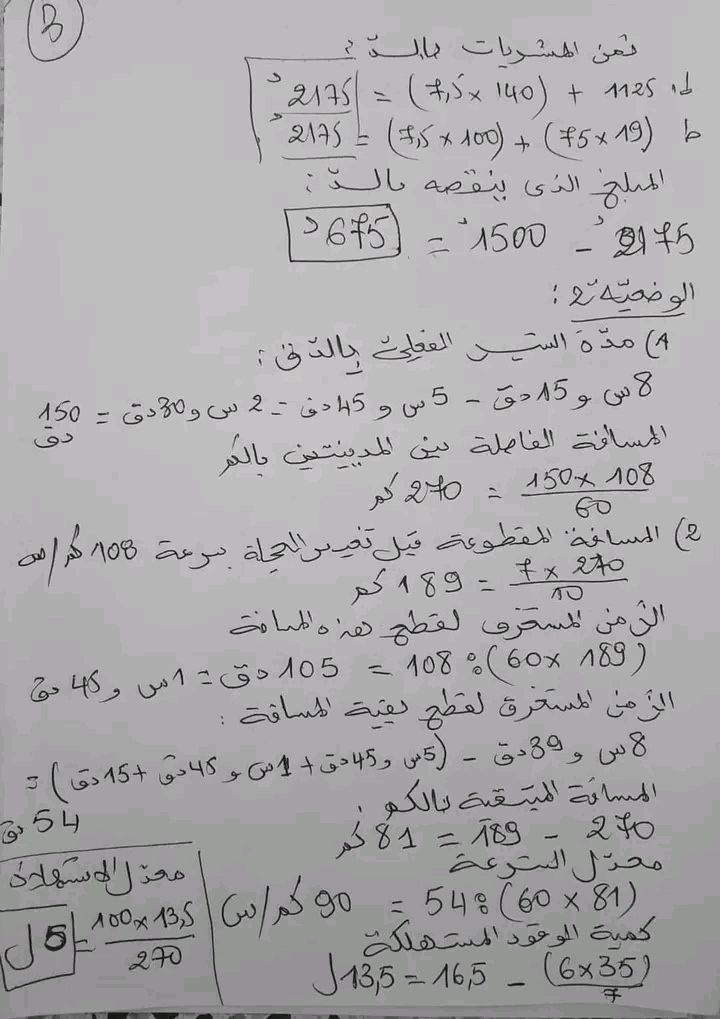 3
ثمن المشريات بالدّ :
ط1 1125 + (140 × 7,5) = 2175د
ط (19 × 75) + (100 × 7,5) = 2175د
المبلغ الذي ينقصه بالدّ :
2175د - 1500د = 675د
الوضعيّة 2 :
1) مدّة السّير الفعليّ بالدّق :
8س و 15دق - 5س و 45دق = 2س و 30دق = 150دق
المسافة الفاصلة بين المدينتين بالكم
150 × 108 / 60 = 270 كم
2) المسافة المقطوعة قبل تغيير العجلة بسرعة 108 كم/س
7 × 270 / 10 = 189 كم
الزّمن المستغرق لقطع هذه المسافة
(189 × 60) : 108 = 105 دق = 1س و 45 دق
الزّمن المستغرق لقطع بقية المسافة :
8س و 39دق - (5س و 45دق + 1س و 45دق + 15دق) =
54 دق
المسافة المتبقية بالكم :
270 - 189 = 81 كم
معدّل السّرعة
(81 × 60) : 54 = 90 كم/س
كمية الوقود المستهلكة
(6 × 35) / 7 - 16,5 = 13,5 ل
معدّل الاستهلاك
100 × 13,5 / 270 = 5 ل